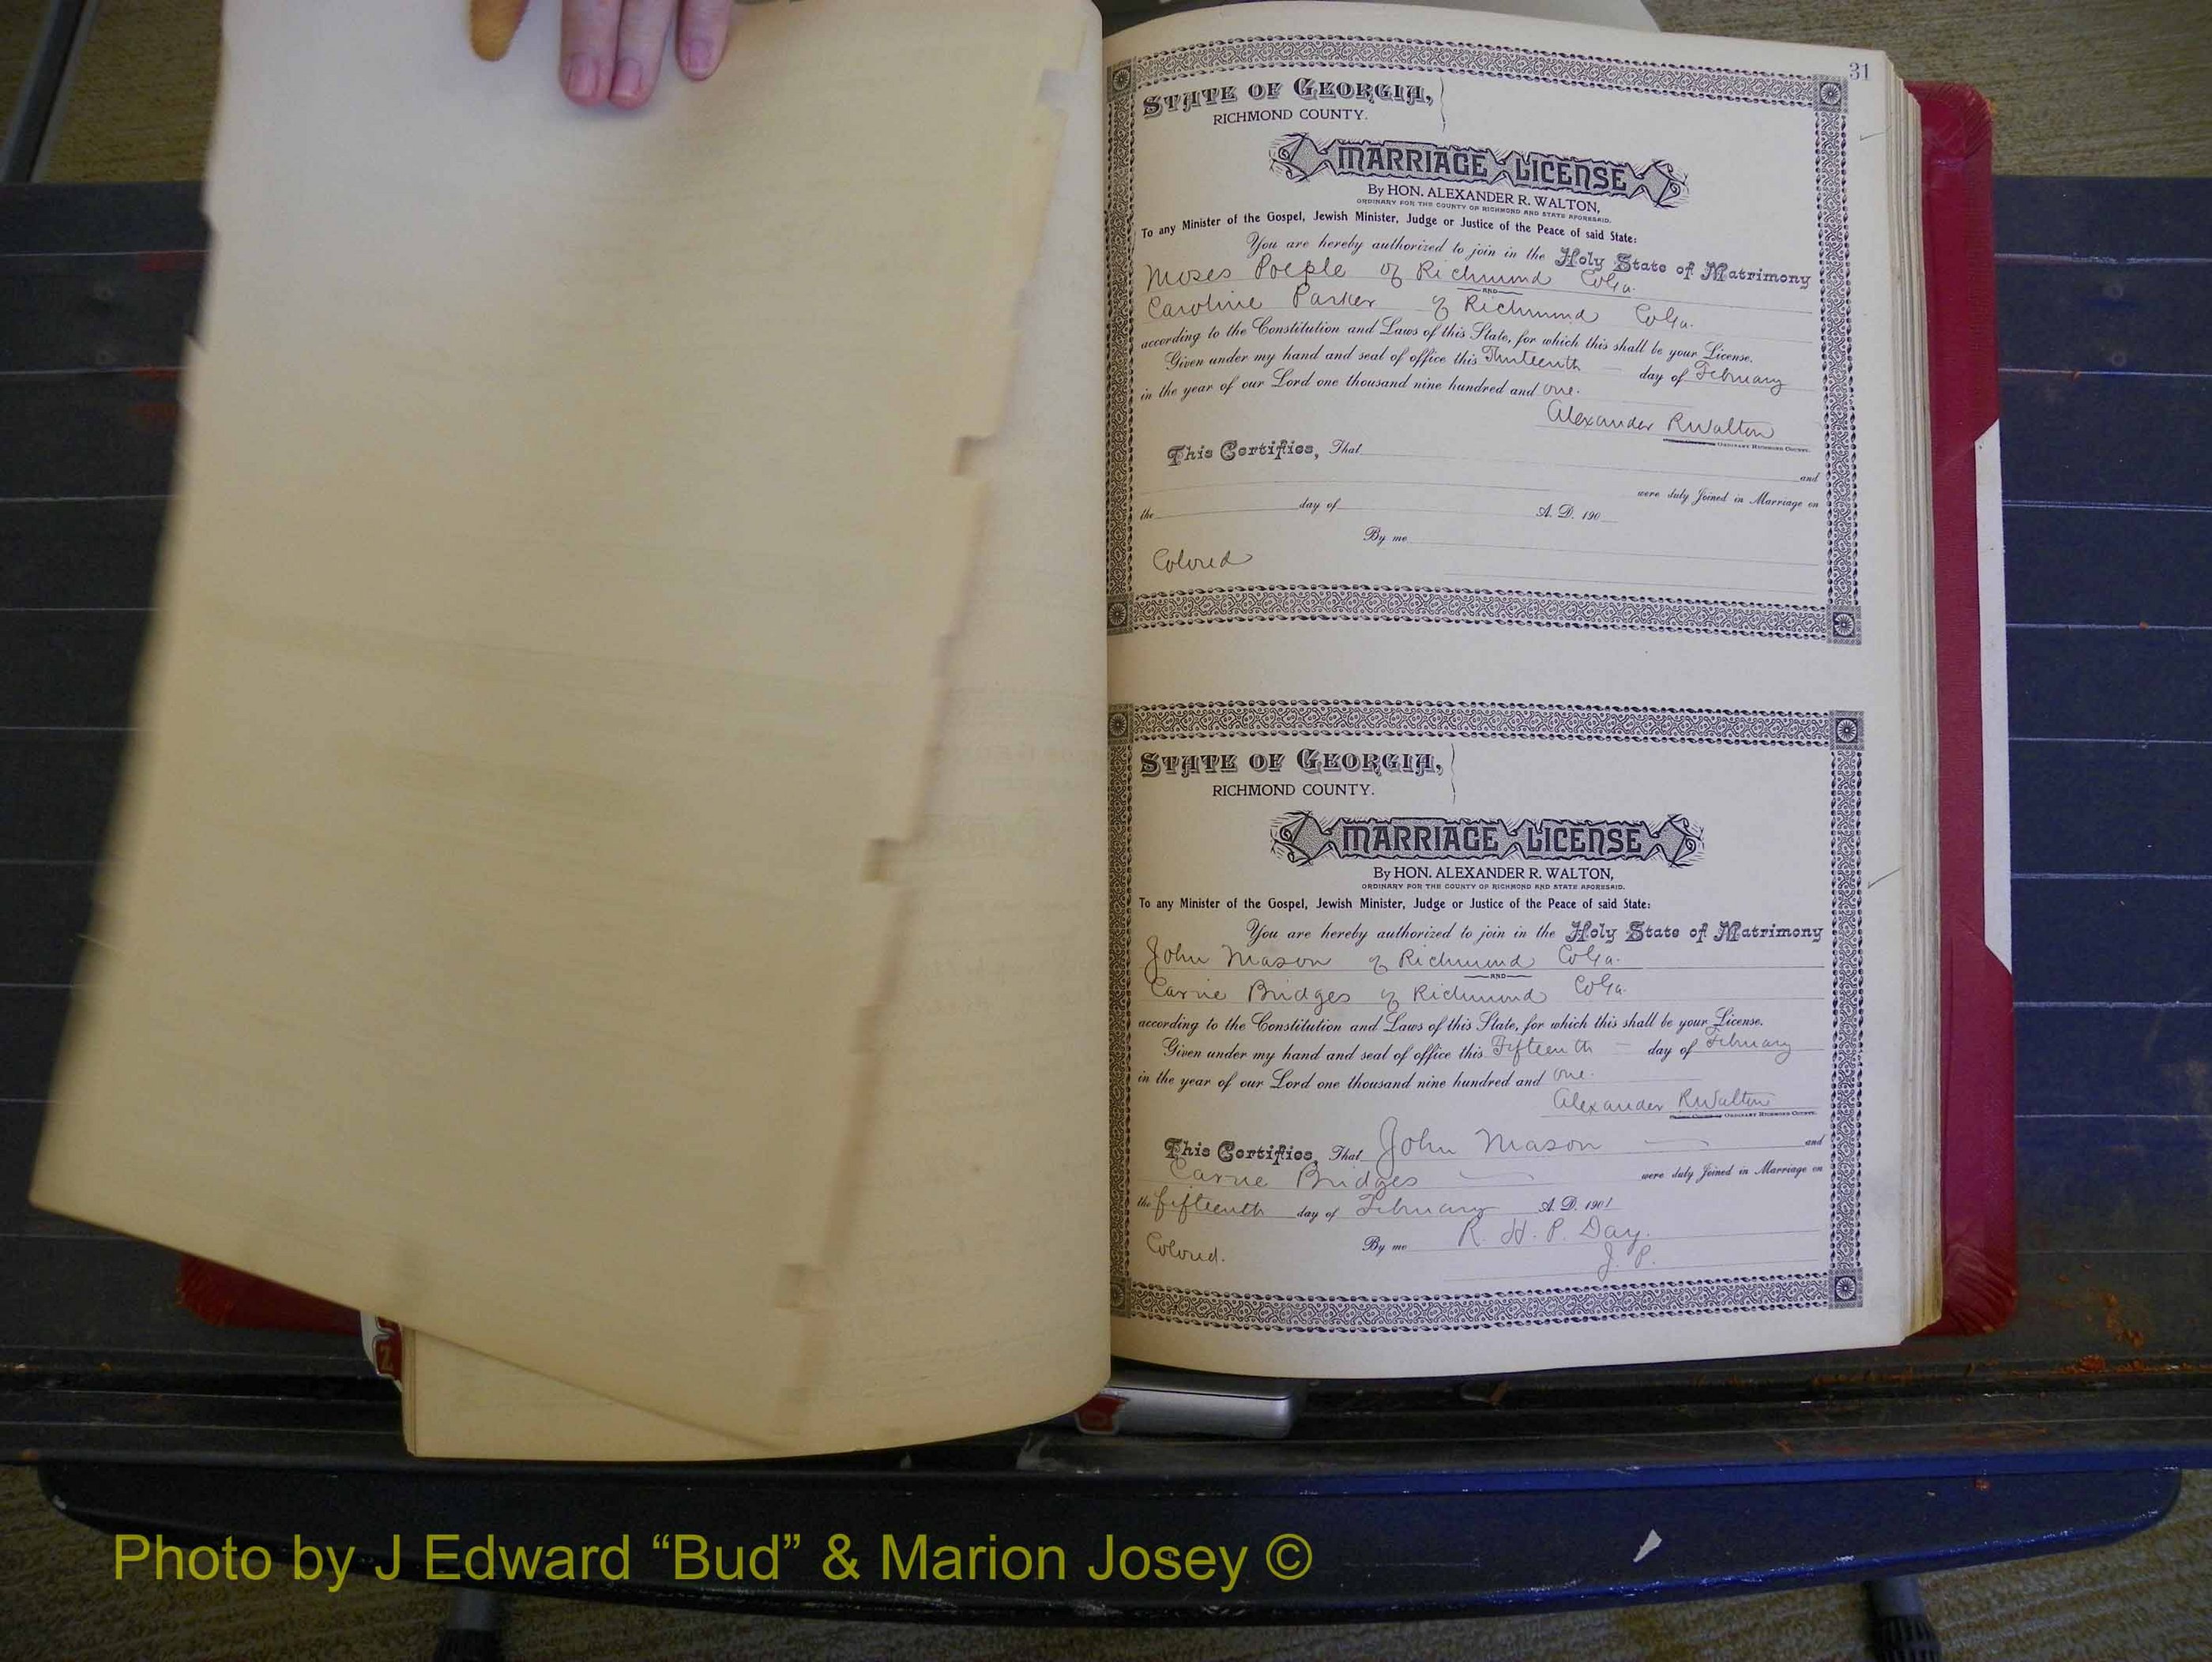 31
STATE OF GEORGIA,
RICHMOND COUNTY.
MARRIAGE LICENSE
By HON. ALEXANDER R. WALTON,
ORDINARY FOR THE COUNTY OF RICHMOND AND STATE AFORESAID.
To any Minister of the Gospel, Jewish Minister, Judge or Justice of the Peace of said State:
You are hereby authorized to join in the Holy State of Matrimony
Moses Poeple of Richmond Co Ga.
AND
Caroline Parker of Richmond Co Ga.
according to the Constitution and Laws of this State, for which this shall be your License.
Given under my hand and seal of office this Thirteenth day of February
in the year of our Lord one thousand nine hundred and one.
Alexander R Walton
ORDINARY RICHMOND COUNTY.
This Certifies, That
and
were duly Joined in Marriage on
the day of A. D. 190
By me
Colored
STATE OF GEORGIA,
RICHMOND COUNTY.
MARRIAGE LICENSE
By HON. ALEXANDER R. WALTON,
ORDINARY FOR THE COUNTY OF RICHMOND AND STATE AFORESAID.
To any Minister of the Gospel, Jewish Minister, Judge or Justice of the Peace of said State:
You are hereby authorized to join in the Holy State of Matrimony
John Mason of Richmond Co Ga.
AND
Carrie Bridges of Richmond Co Ga.
according to the Constitution and Laws of this State, for which this shall be your License.
Given under my hand and seal of office this Fifteenth day of February
in the year of our Lord one thousand nine hundred and one.
Alexander R Walton
ORDINARY RICHMOND COUNTY.
This Certifies, That John Mason and
Carrie Bridges were duly Joined in Marriage on
the fifteenth day of February A. D. 1901
By me R. H. P. Day.
Colored. J. P.
Photo by J Edward “Bud” & Marion Josey ©